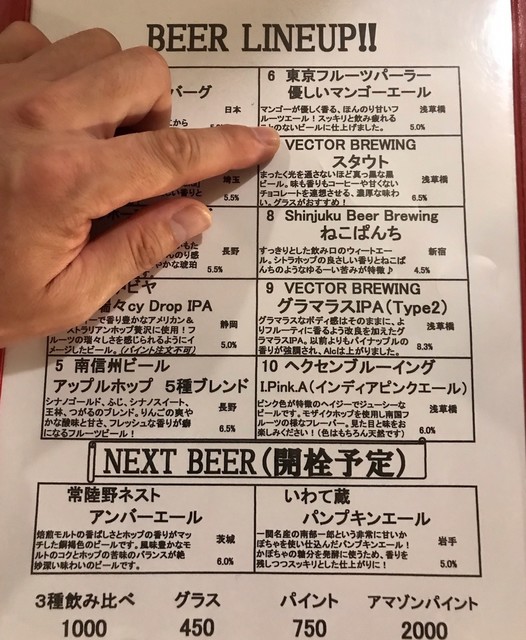 BEER LINEUP!!
バーグ
日本
から
埼玉
5.5%
長野
5.5%
ビヤ
瑞々cy Drop IPA
静岡
5.0%
ーで香り豊かなアメリカン&
ストラリアンホップ贅沢に使用!フ
ルーツの瑞々しさを感じられるようにイ
メージしたビール。(パイント注文不可)
5 南信州ビール
アップルホップ 5種ブレンド
シナノゴールド、ふじ、シナノスイート、
王林、つがるのブレンド。りんごの爽や
かな酸味と甘さ、フレッシュな香りが癖
になるフルーツビール!
長野
6.5%
6 東京フルーツパーラー
優しいマンゴーエール
マンゴーが優しく香る、ほんのり甘いフ
ルーツエール!スッキリと飲み疲れる
ことのないビールに仕上げました。
浅草橋
5.0%
VECTOR BREWING
スタウト
まったく光を通さないほど真っ黒な黒
ビール。味も香りもコーヒーや甘くない
チョコレートを連想させる、濃厚な味わ
い。グラスがおすすめ!
浅草橋
6.5%
8 Shinjuku Beer Brewing
ねこぱんち
すっきりとした飲み口のウィートエー
ル。シトラホップの良さしい香りとねこぱ
んちのようなゆるーい苦みが特徴♪
新宿
4.5%
9 VECTOR BREWING
グラマラスIPA(Type2)
グラマラスなボディ感はそのままに、よ
りフルーティに香るよう改良を加えたグ
ラマラスIPA。以前よりもパイナップルの
香りが強調され、Alcは上がりました。
浅草橋
8.3%
10 ヘクセンブルーイング
I.Pink.A(インディアピンクエール)
ピンク色が特徴のヘイジーでジューシーな
ビールです。モザイクホップを使用し南国フ
ルーツの様なフレーバー。見た目と味をお
楽しみください!(色はもちろん天然です)
浅草橋
6.0%
NEXT BEER(開栓予定)
常陸野ネスト
アンバーエール
焙煎モルトの香ばしさとホップの香りがマッ
チした銅褐色のビールです。風味豊かなモ
ルトのコクとホップの苦味のバランスが絶
妙深い味わいのビールです。
茨城
6.0%
いわて蔵
パンプキンエール
一関名産の南部一郎という非常に甘いか
ぼちゃを使い仕込んだパンプキンエール!
かぼちゃの糖分を発酵に使うため、香りを
残しつつスッキリとした仕上がりに!
岩手
5.0%
3種飲み比べ グラス パイント アマゾンパイント
1000 450 750 2000